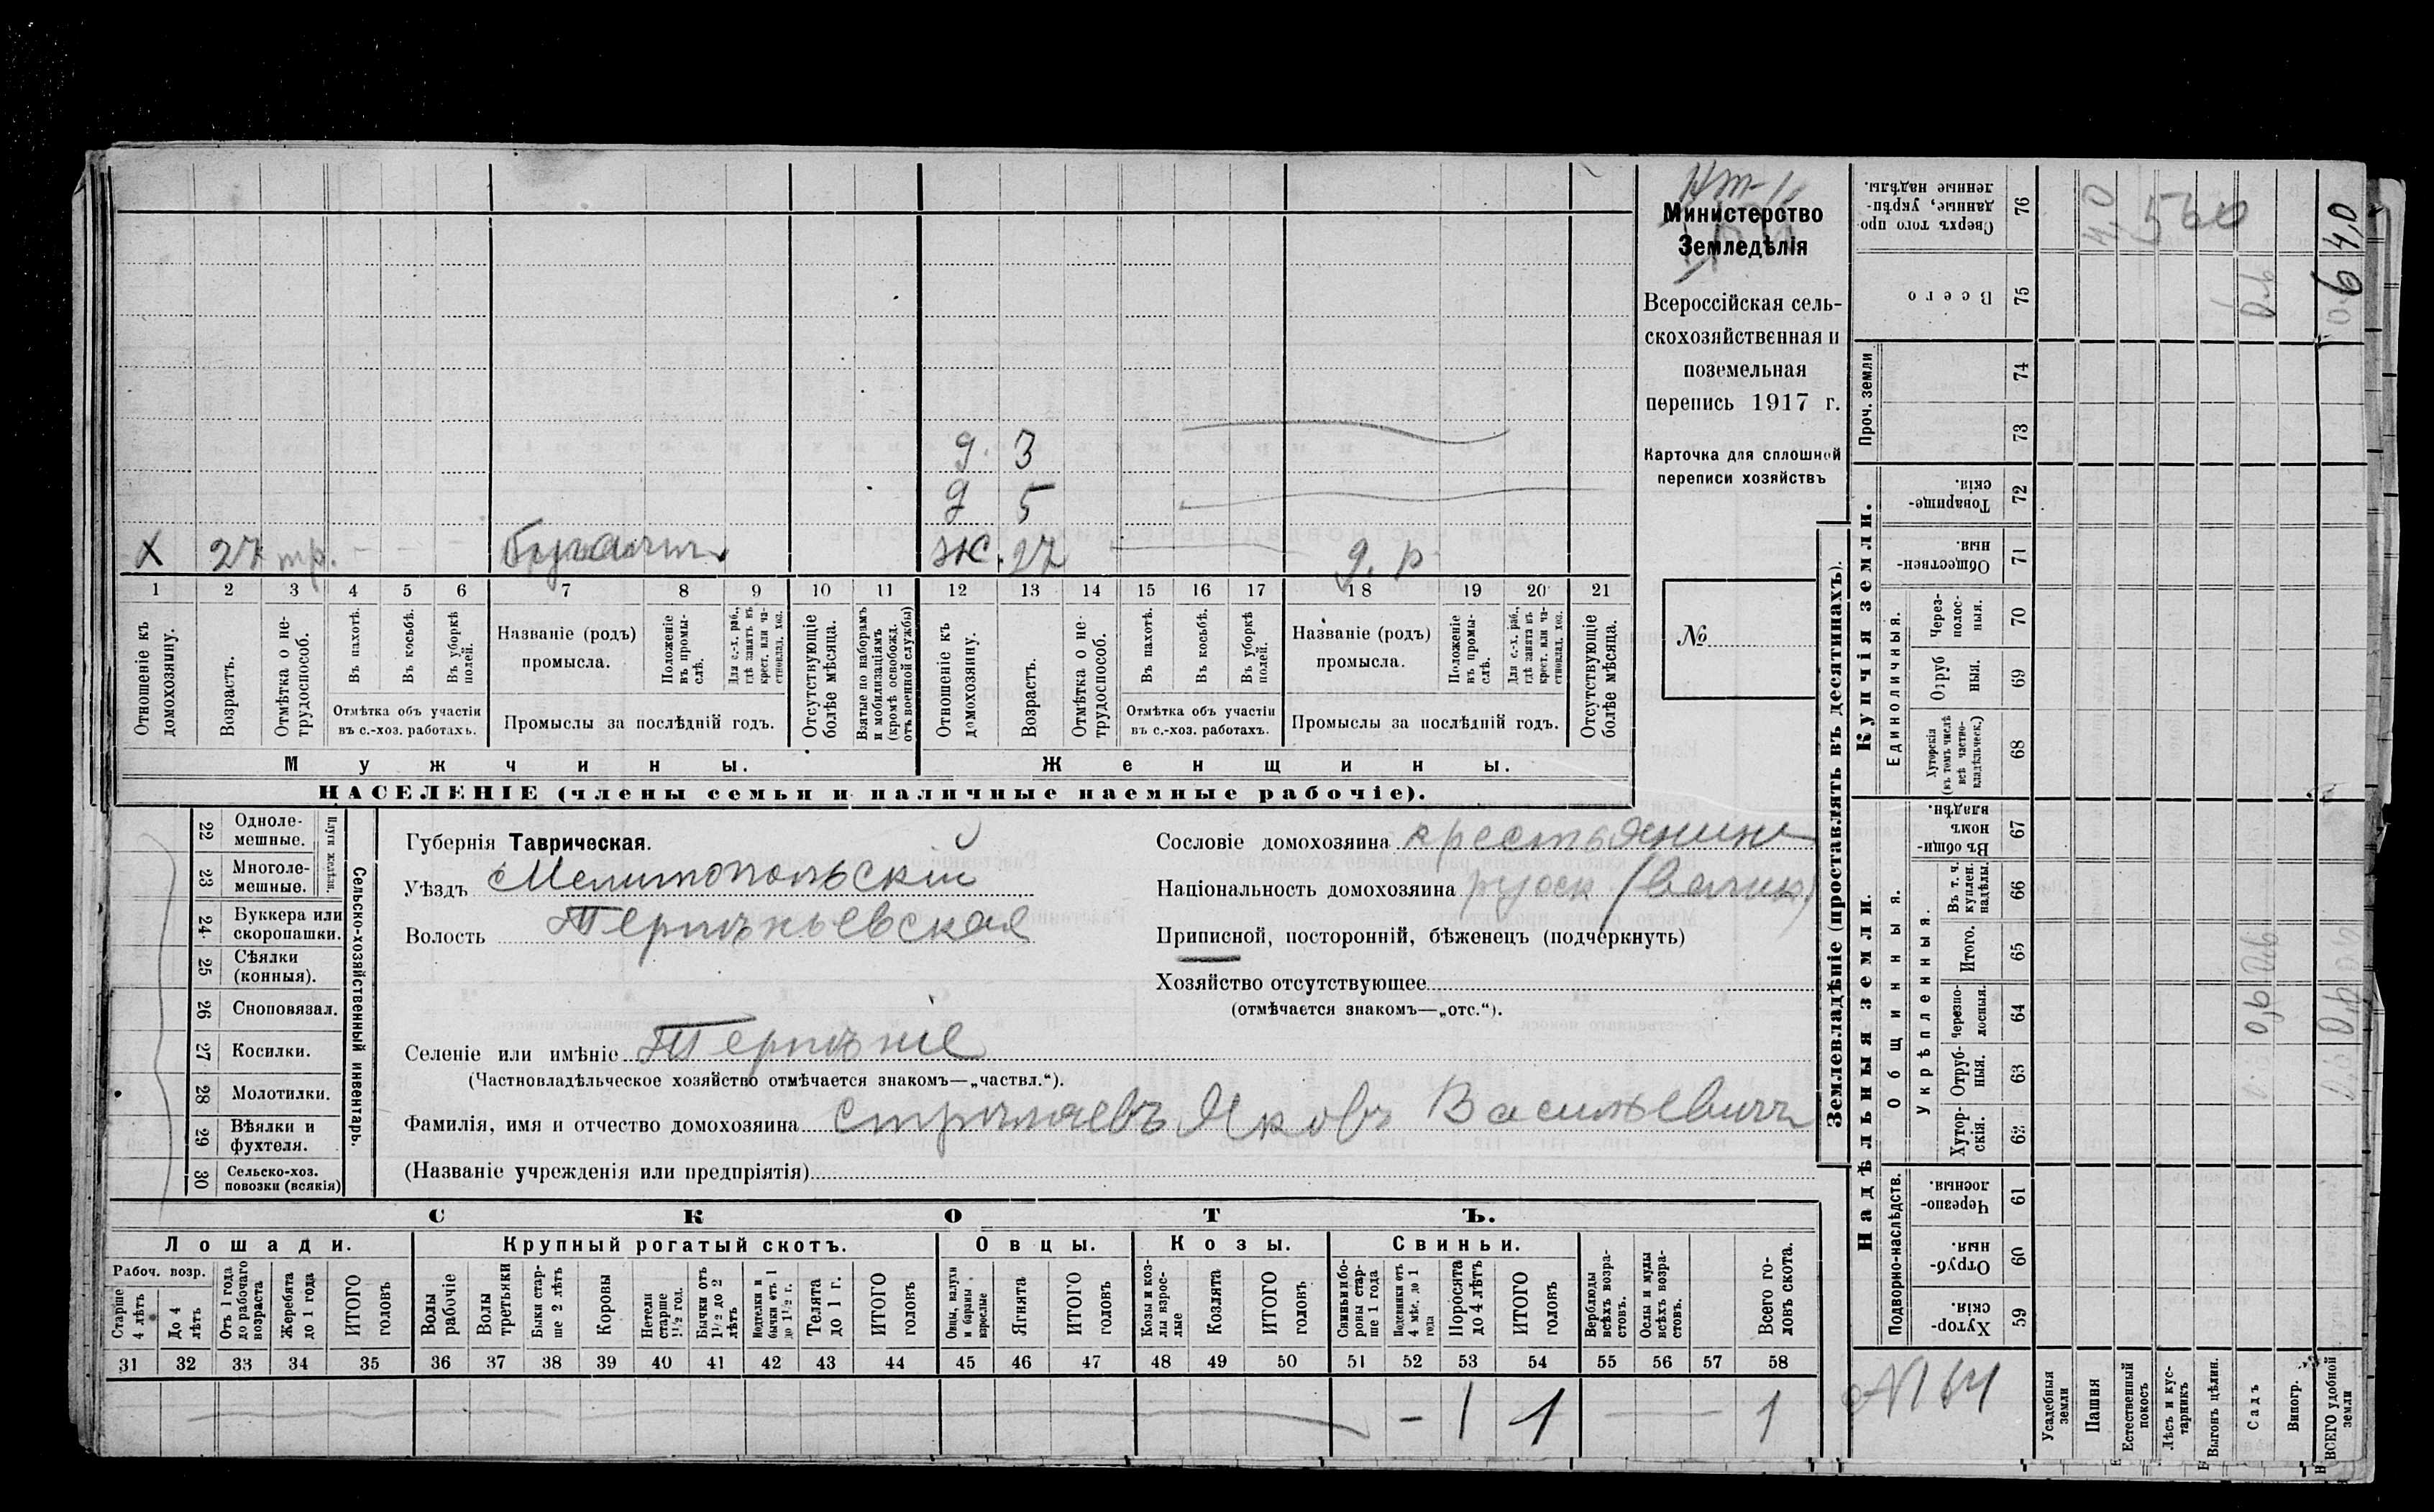 Министерство
Земледѣлія
Всероссійская сель-
скохозяйственная и
поземельная
перепись 1917 г.
Карточка для сплошной
переписи хозяйствъ
№
д. 3
д 5
х 27 тр. ж. 27 д. р.
1 2 3 4 5 6 7 8 9 10 11 12 13 14 15 16 17 18 19 20 21
Отношеніе къ домохозяину.
Возрастъ.
Отмѣтка о не-трудоспособ.
Въ пахотѣ.
Въ косьбѣ.
Въ уборкѣ полей.
Отмѣтка объ участіи
въ с.-хоз. работахъ.
Названіе (родъ)
промысла.
Положеніе въ промы-слѣ.
Для с.-х. раб., гдѣ занятъ въ крест. или ча-стновлад. хоз.
Промыслы за послѣдній годъ.
Отсутствующіе болѣе мѣсяца.
Взятые по наборамъ и мобилизаціямъ (кромѣ освобожд. отъ военной службы)
Отношеніе къ домохозяину.
Возрастъ.
Отмѣтка о не-трудоспособ.
Въ пахотѣ.
Въ косьбѣ.
Въ уборкѣ полей.
Отмѣтка объ участіи
въ с.-хоз. работахъ.
Названіе (родъ)
промысла.
Положеніе въ промы-слѣ.
Для с.-х. раб., гдѣ занята въ крест. или ча-стновлад. хоз.
Промыслы за послѣдній годъ.
Отсутствующіе болѣе мѣсяца.
Мужчины. Женщины.
НАСЕЛЕНІЕ (члены семьи и наличные наемные рабочіе).
22 Одноле-мешные.
23 Многоле-мешные.
Плуги желѣзн.
24 Буккера или скоропашки.
25 Сѣялки (конныя).
26 Сноповязал.
27 Косилки.
28 Молотилки.
29 Вѣялки и фухтеля.
30 Сельско-хоз. повозки (всякія)
Сельско-хозяйственный инвентарь.
Губернія Таврическая.
Уѣздъ Мелитопольскій
Волость Терпѣньевская
Сословіе домохозяина крестьянин
Національность домохозяина русск (велик)
Приписной, посторонній, бѣженецъ (подчеркнуть)
Хозяйство отсутствующее
(отмѣчается знакомъ—„отс.“).
Селеніе или имѣніе Терпѣніе
(Частновладѣльческое хозяйство отмѣчается знакомъ—„частвл.“).
Фамилія, имя и отчество домохозяина Яковъ Васильевичъ
(Названіе учрежденія или предпріятія)
СКОТЪ.
Лошади. Крупный рогатый скотъ. Овцы. Козы. Свиньи.
Рабоч. возр.
Старше 4 лѣтъ
До 4 лѣтъ
Отъ 1 года до рабочаго возраста
Жеребята до 1 года
ИТОГО головъ
Волы рабочіе
Волы третьяки
Быки стар-ше 2 лѣтъ
Коровы
Нетели старше 1½ год.
Бычки отъ 1½ до 2 лѣтъ
Телята до 1 г.
ИТОГО головъ
Овцы, валухи и бараны взрослые
Ягнята
ИТОГО головъ
Козы и коз-лы взрос-лые
Козлята
ИТОГО головъ
Свиньи и бо-ровы стар-ше 1 года
Подсвинки отъ 4 мѣс. до 1 года
Поросята до 4 лѣтъ
ИТОГО головъ
Верблюды всѣхъ возра-стовъ.
Ослы и мулы всѣхъ возра-стовъ.
Всего го-ловъ скота.
31 32 33 34 35 36 37 38 39 40 41 42 43 44 45 46 47 48 49 50 51 52 53 54 55 56 57 58
- 1 1 1
Землевладѣніе (проставлять въ десятинахъ).
Надѣльныя земли. Купчія земли. Проч. земли
Подворно-наслѣдств. Общинныя. Единоличныя.
Укрѣпленныя.
Хутор-скія. 59
Отруб-ныя. 60
Черезпо-лосныя. 61
Хутор-скія. 62
Отруб-ныя. 63
Черезпо-лосныя. 64
Итого. 65
Въ т. ч. куплен. надѣлы. 66
Въ общи-номъ владѣн. 67
Хуторскія (въ томъ числѣ всѣ частно-владѣльческ.) 68
Отруб ныя. 69
Через-полос-ныя. 70
Обществен-ныя. 71
Товарище-скія. 72
73
74
Всего 75
Сверхъ того про данные, укрѣп-ленные надѣлы. 76
№ 64
Усадебныя земли
Пашня 4,0
Естественный покосъ
Лѣсъ и кус-тарникъ
Выгонъ цѣлин.
Садъ
Виногр.
ВСЕГО удобной земли 4,0